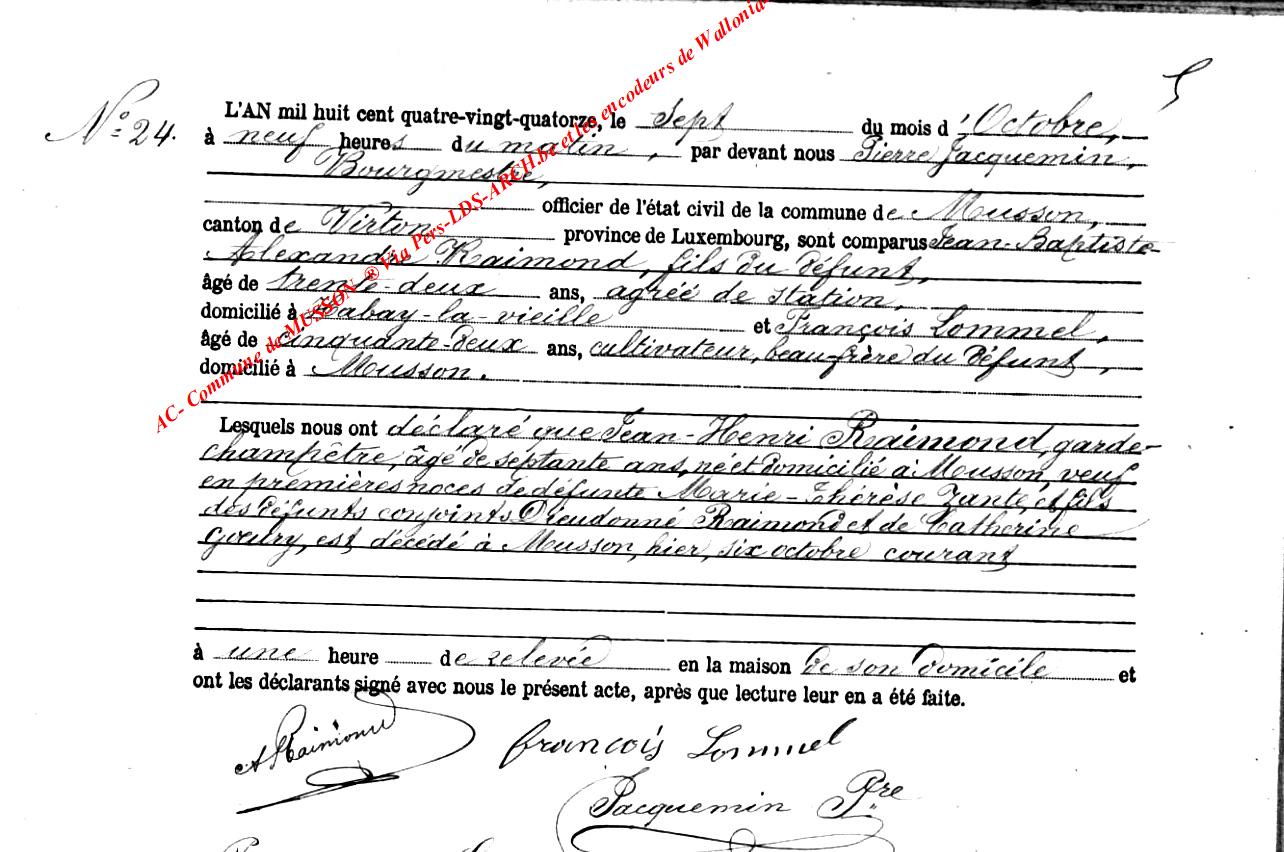 5
N° 24.
L'AN mil huit cent quatre-vingt-quatorze, le Sept du mois d'Octobre,
à neuf heures du matin, par devant nous Pierre Jacquemin,
Bourgmestre,
officier de l'état civil de la commune de Musson,
canton de Virton province de Luxembourg, sont comparus Jean-Baptiste-
Alexandre Raimond, fils du défunt,
âgé de trente-deux ans, agréé de station,
domicilié à Habay-la-vieille et François Lommel,
âgé de cinquante-deux ans, cultivateur, beau-frère du défunt,
domicilié à Musson.
Lesquels nous ont déclaré que Jean-Henri Raimond, garde-
champêtre, âgé de septante ans, né et domicilié à Musson, veuf
en premières noces de défunte Marie-Thérèse Zante, et fils
des défunts conjoints Dieudonné Raimond et de Catherine
Goeury, est décédé à Musson, hier, six octobre courant
à une heure de relevée en la maison de son domicile et
ont les déclarants signé avec nous le présent acte, après que lecture leur en a été faite.
A Raimond
françois Lommel
Jacquemin Pre
AC- Commune de MUSSON ® Via Pers-LDS-ARCH.be et les encodeurs de Wallonia